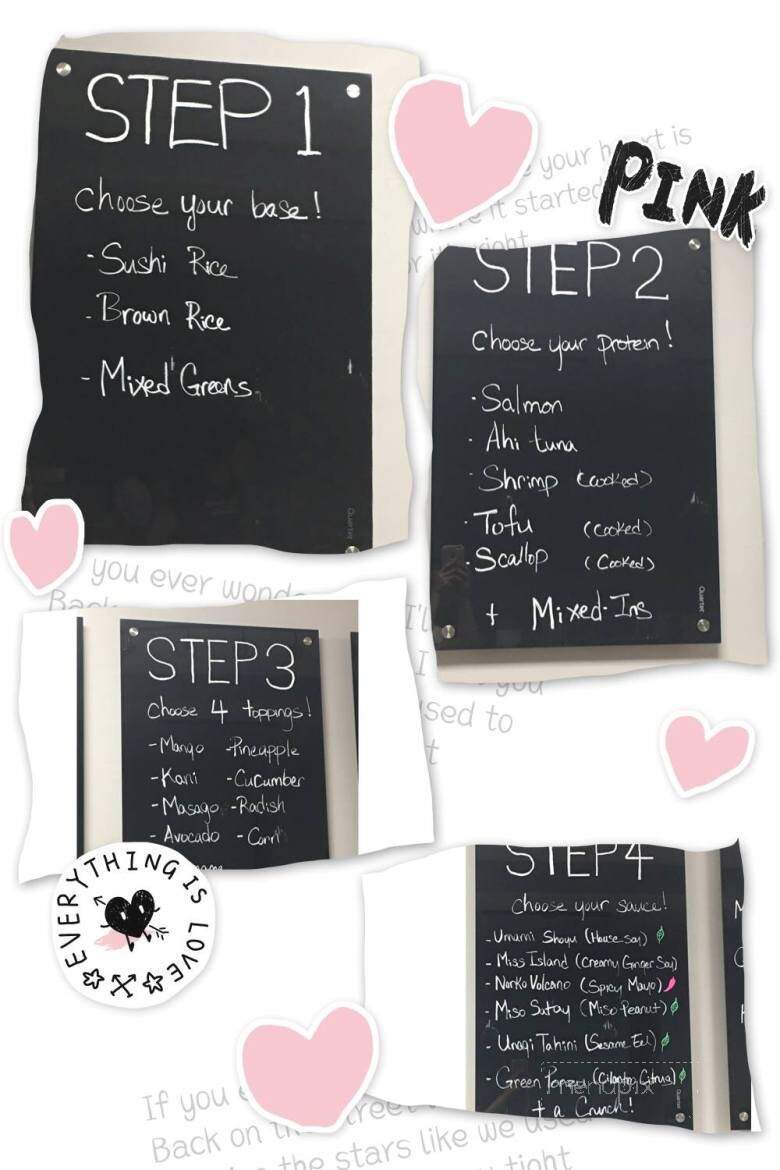 STEP 1
Choose your base!
- Sushi Rice
- Brown Rice
- Mixed Greens
Quartet
PINK
your heart is
it started
right
STEP 2
Choose your protein!
· Salmon
· Ahi tuna
· Shrimp (cooked)
· Tofu (cooked)
· Scallop (cooked)
+ Mixed-Ins
Quartet
you ever wonde
Back
I'll
I you
used to
STEP 3
Choose 4 toppings!
- Mango - Pineapple
- Kani - Cucumber
- Masago - Radish
- Avocado - Corn
EVERYTHING IS LOVE
STEP 4
Choose your sauce!
- Umami Shoyu (House soy)
- Miss Island (Creamy Ginger Soy)
- Norko Volcano (Spicy Mayo)
- Miso Satay (Miso Peanut)
- Unagi Tahini (Sesame Eel)
- Green Ponzu (Cilantro Citrus)
+ a Crunch!
Quartet
menupix
If you
Back on the street
the stars like we used
tight